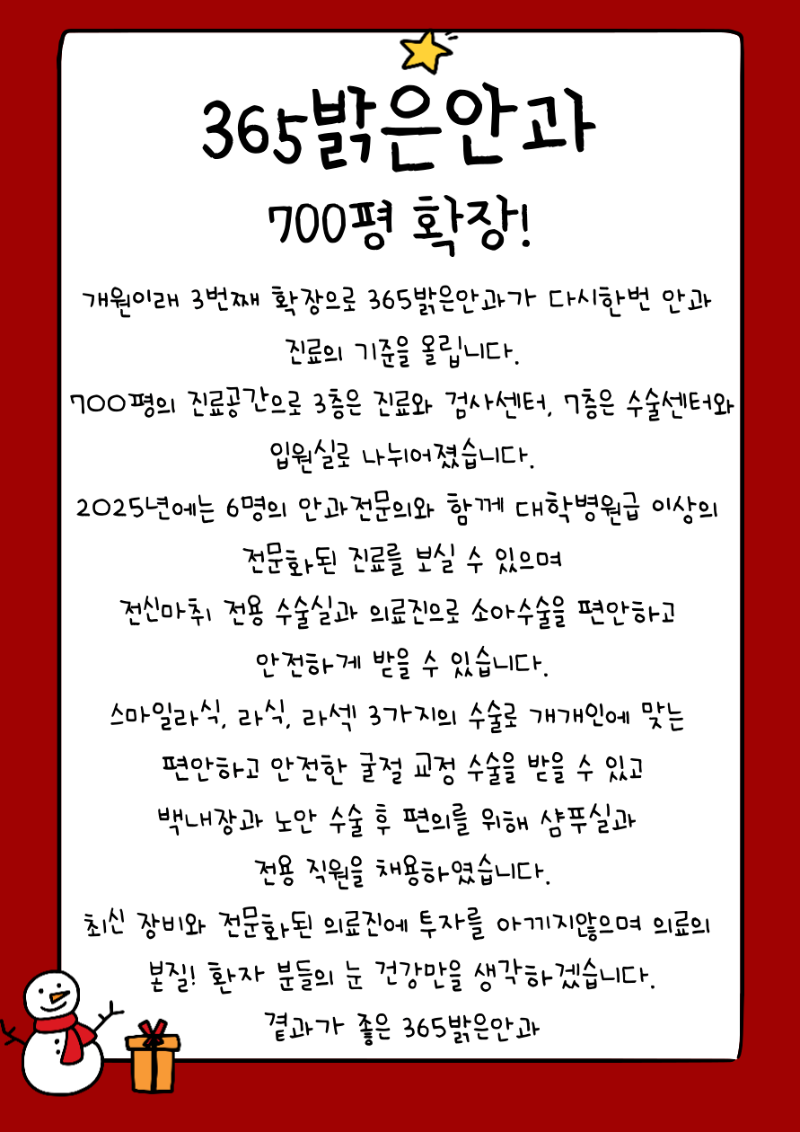 365밝은안과
700평 확장!
개원이래 3번째 확장으로 365밝은안과가 다시한번 안과
진료의 기준을 올립니다.
700평의 진료공간으로 3층은 진료와 검사센터, 7층은 수술센터와
입원실로 나뉘어졌습니다.
2025년에는 6명의 안과전문의와 함께 대학병원급 이상의
전문화된 진료를 보실 수 있으며
전신마취 전용 수술실과 의료진으로 소아수술을 편안하고
안전하게 받을 수 있습니다.
스마일라식, 라식, 라섹 3가지의 수술로 개개인에 맞는
편안하고 안전한 굴절 교정 수술을 받을 수 있고
백내장과 노안 수술 후 편의를 위해 샴푸실과
전용 직원을 채용하였습니다.
최신 장비와 전문화된 의료진에 투자를 아끼지않으며 의료의
본질! 환자 분들의 눈 건강만을 생각하겠습니다.
결과가 좋은 365밝은안과